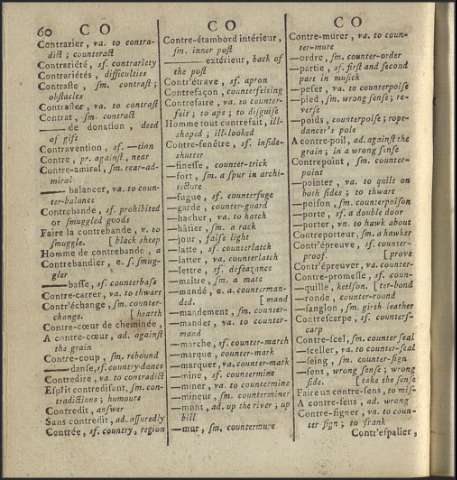 60 C O
C O
C O
Contrarier, va. to contra-
dict; counteract
Contrariété, sf. contrariety
Contrariétés, difficulties
Contraste, sm. contrast;
obstacles
Contraster, va. to contrast
Contrat, sm. contract
— de donation, deed
of gift
Contravention, sf. —tion
Contre, pr. against, near
Contre-amiral, sm. rear-ad-
miral
— balancer, va. to coun-
ter-balance
Contrebande, sf. prohibited
or smuggled goods
Faire la contrebande, v. to
smuggle. [black sheep
Homme de contrebande, a
Contrebandier, s. f. smug-
gler
—basse, sf. counterbass
Contre-carrer, va. to thwart
Contr'échange, sm. counter-
change. [hearth
Contre-cœur de cheminée,
A contre-cœur, ad. against
the grain
Contre-coup, sm. rebound
—danse, sf. country-dance
Contredire, va. to contradict
Esprit contredisant, sm. con-
tradictions; humour
Contredit, answer
Sans contredit, ad. assuredly
Contrée, sf. country, region
Contre-étambord intérieur,
sm. inner post
— extérieur, back of
the post
Contr'étrave, sf. apron
Contrefaçon, counterfeiting
Contrefaire, va. to counter-
fait; to ape; to disguise
Homme tout contrefait, ill-
shaped; ill-looked
Contre-fenêtre, sf. inside-
shutter
—finesse, counter-trick
—fort, sm. a spur in archi-
tecture
—fugue, sf. counterfuge
—garde, counter-guard
—hacher, va. to hatch
—hâtier, sm. a rack
—jour, false light
—latte, sf. counterlatch
—latter, va. counterlatch
—lettre, sf. defeazance
—maître, sm. a mate
—mandé, e. a. counterman-
ded. [mand
—mandement, sm. counter-
—mander, va. to counter-
mand
—marche, sf. counter-march
—marque, counter-mark
—marquer, va. counter-mark
—mine, sf. countermine
—miner, va. to countermine
—mineur, sm. counterminer
—mont, ad. up the river; up
hill
—mur, sm. countermure
Contre-murer, va. to coun-
ter-mure
—ordre, sm. counter-order
—partie, sf. first and second
part in musick
—peser, va. to counterpoise
—pied, sm. wrong sense; re-
verse
—poids, counterpoise; rope-
dancer's pole
A contre-poil, ad. against the
grain; in a wrong sense
Contrepoint, sm. counter-
point
—pointer, va. to quilt on
both sides; to thwart
—poison, sm. counterpoison
—porte, sf. a double door
—porter, vn. to hawk about
Contreporteur, sm. a hawker
Contr'épreuve, sf. counter-
proof. [prove
Contr'épreuver, va. counter-
Contre-promesse, sf. coun-
—quille, keelson. [ter-bond
—ronde, counter-round
—sanglon, sm. girth leather
Contrescarpe, sf. counters-
carp
Contre-scel, sm. counter seal
—sceller, va. to counter-seal
—seing, sm. counter-sign.
—sens, wrong sense; wrong
side. [take the sense
Faire un contre-sens, to mis-
A contre-sens, ad. wrong
Contre-signer, va. to coun-
ter sign; to frank
Contr'espalier,